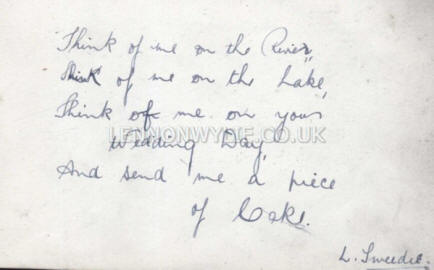 Think of me on the River,
Think of me on the Lake,
Think of me on your
LENNONWYLIE.CO.UK
Wedding Day,
And send me a piece
of Cake.
L. Tweedie.